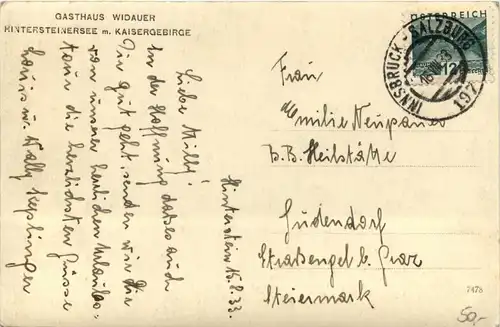 GASTHAUS WIDAUER
HINTERSTEINERSEE M. KAISERGEBIRGE
Hinterstein 15.8.33.
Liebe Milly!
In der Hoffnung daß es auch
Dir gut geht, senden wir Dir
von unserer herrlichen Urlaubs-
tour die herzlichsten Grüsse
Louis u. Wally Keplinger
ÖSTERREICH
12
INNSBRUCK - SALZBURG
197
Frau
Emilie Neupauer
B.B. Heilstätte
Gudendorf
Straßengel b. Graz
Steiermark
7478
50,-